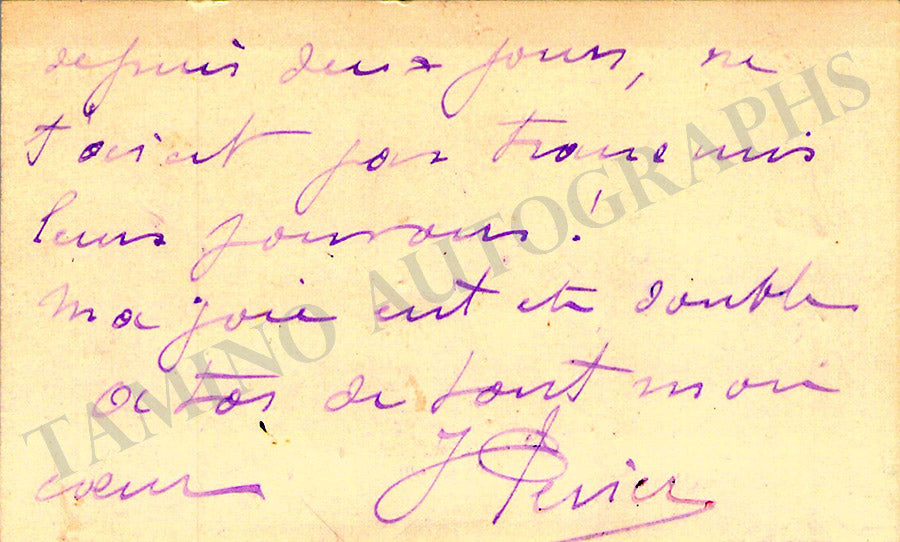 depuis deux jours, ne
t'aient pas transmis
leurs pouvoirs!
Ma joie eut été double
à toi de tout mon
coeur J Périer
TAMINO AUTOGRAPHS